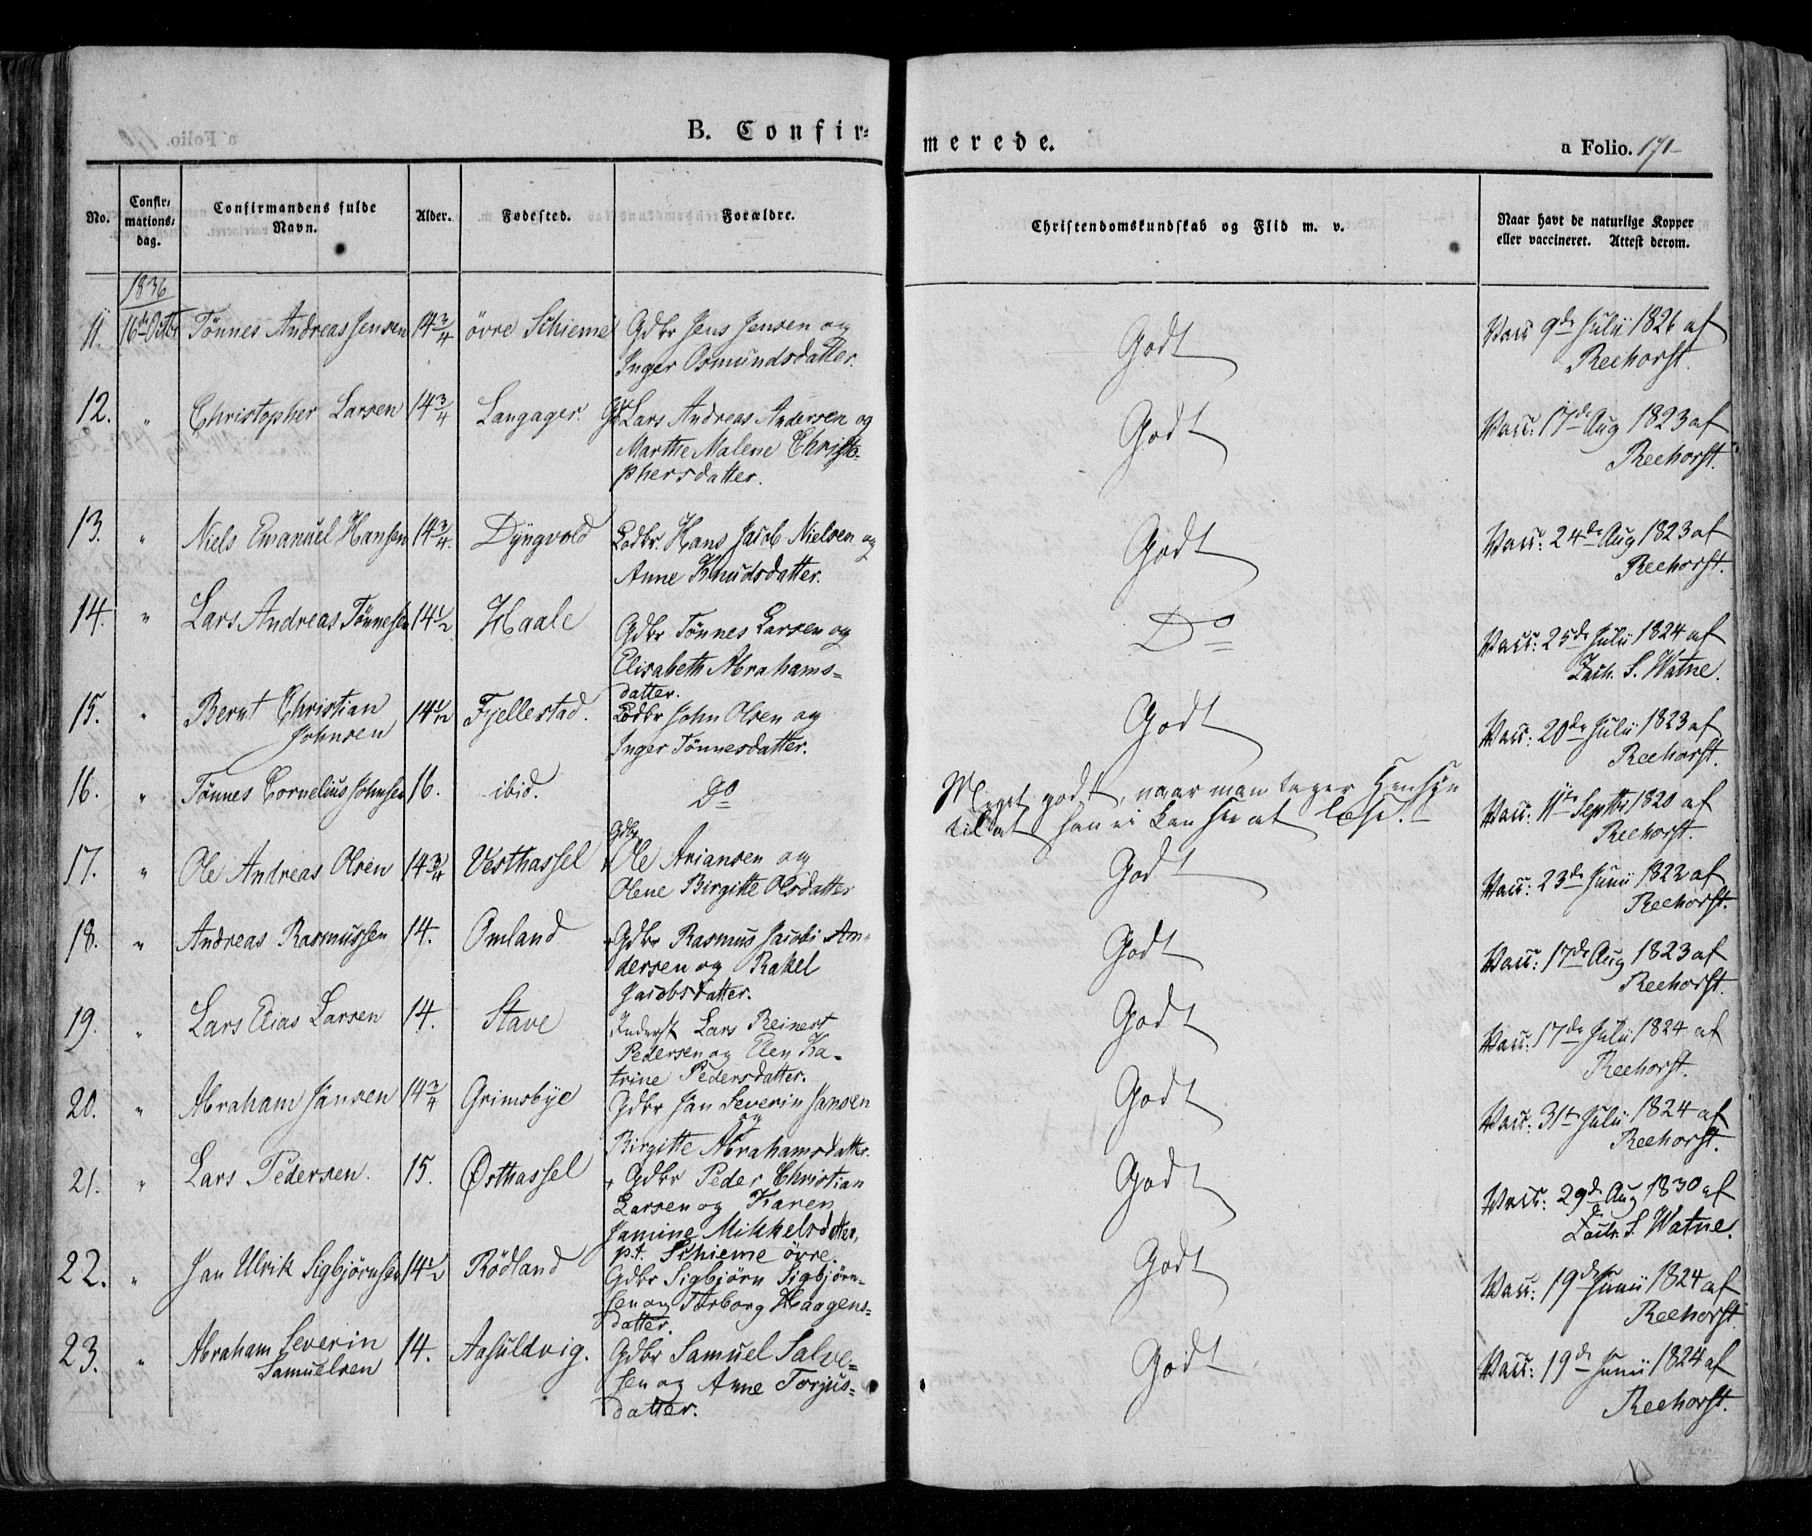 B. Confir-
merede.
a Folio. 171
No.
Confir-
mations-
dag.
Confirmandens fulde
Navn.
Alder.
Fødested.
Forældre.
Christendomskundskab og Flid m. v.
Naar havt de naturlige Kopper
eller vaccineret. Attest derom.
1836
11. 16de Octbr Tønnes Andreas Jensen 14 3/4 øvre Schieme Gdbr Jens Jensen og
Inger Osmundsdatter.
Godt
Vacc 9de Julii 1826 af
Reehorst.
12. " Christopher Larsen 14 3/4 Langager. Gdbr Lars Andreas Andersen og
Marthe Malene Christo-
phersdatter.
Godt
Vacc: 17de Aug 1823 af
Reehorst.
13. " Niels Emanuel Hansen 14 3/4. Dyngvold Lodbr. Hans Jacob Nielsen og
Anne Knudsdatter.
Godt
Vacc: 24de Aug 1823 af
Reehorst.
14. " Lars Andreas Tønnesen 14 1/2 Haale Gdbr Tønnes Larsen og
Elisabeth Abrahams-
datter.
Do
Vacc: 25de Julii 1824 af
Zach. S. Watne.
15. " Bernt Christian
Johnsen
14 1/12 Fjellestad. Lodbr John Olsen og
Inger Tønnesdatter.
Godt
Vacc: 20de Julii 1823 af
Reehorst.
16. " Tønnes Cornelius Johnsen 16. ibid. Do
Meget godt, naar man tager Hensyn
til at han ei kan see at læse.
Vacc: 11te Septbr 1820 af
Reehorst.
17. " Ole Andreas Olsen 14 3/4 Vesthassel Gdbr
Ole Ariansen og
Olene Birgitte Olsdatter
Godt
Vacc: 23de Junii 1822 af
Reehorst.
18. " Andreas Rasmussen 14. Omland Gdbr Rasmus Jacobi An-
dersen og Rakel
Jacobsdatter.
Godt
Vacc: 17de Aug 1823 af
Reehorst.
19. " Lars Elias Larsen 14. Stave Inderst Lars Reinert
Pedersen og Elen Ka-
trine Pedersdatter.
Godt
Vacc: 17de Julii 1824 af
Reehorst.
20. " Abraham Jansen 14 3/4 Grimsbye Gdbr Jan Severin Jansen
og
Birgitte Abrahamsdatter.
Godt
Vacc: 31te Julii 1824 af
Reehorst.
21. " Lars Pedersen. 15. Østhassel Gdbr Peder Christian
Larsen og Karen
Jamine Mikkelsdatter,
p.t. Schieme øvre.
Godt
Vacc: 29de Aug 1830 af
Zach. S. Watne.
22. " Jan Ulrik Sigbjørnsen 14 1/2 Rødland Gdbr Sigbjørn Sigbjørn-
sen og Torborg Haagens-
datter.
Godt
Vacc: 19de Junii 1824 af
Reehorst
23. " Abraham Severin
Samuelsen
14. Aasuldvig. Gdbr Samuel Salve-
sen og Anne Torjus-
datter.
Godt
Vacc: 19de Junii 1824 af
Reehorst.